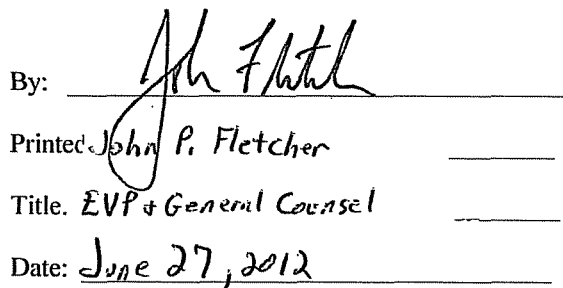 By: John Fletcher
Printed John P. Fletcher
Title. EVP + General Counsel
Date: June 27, 2012